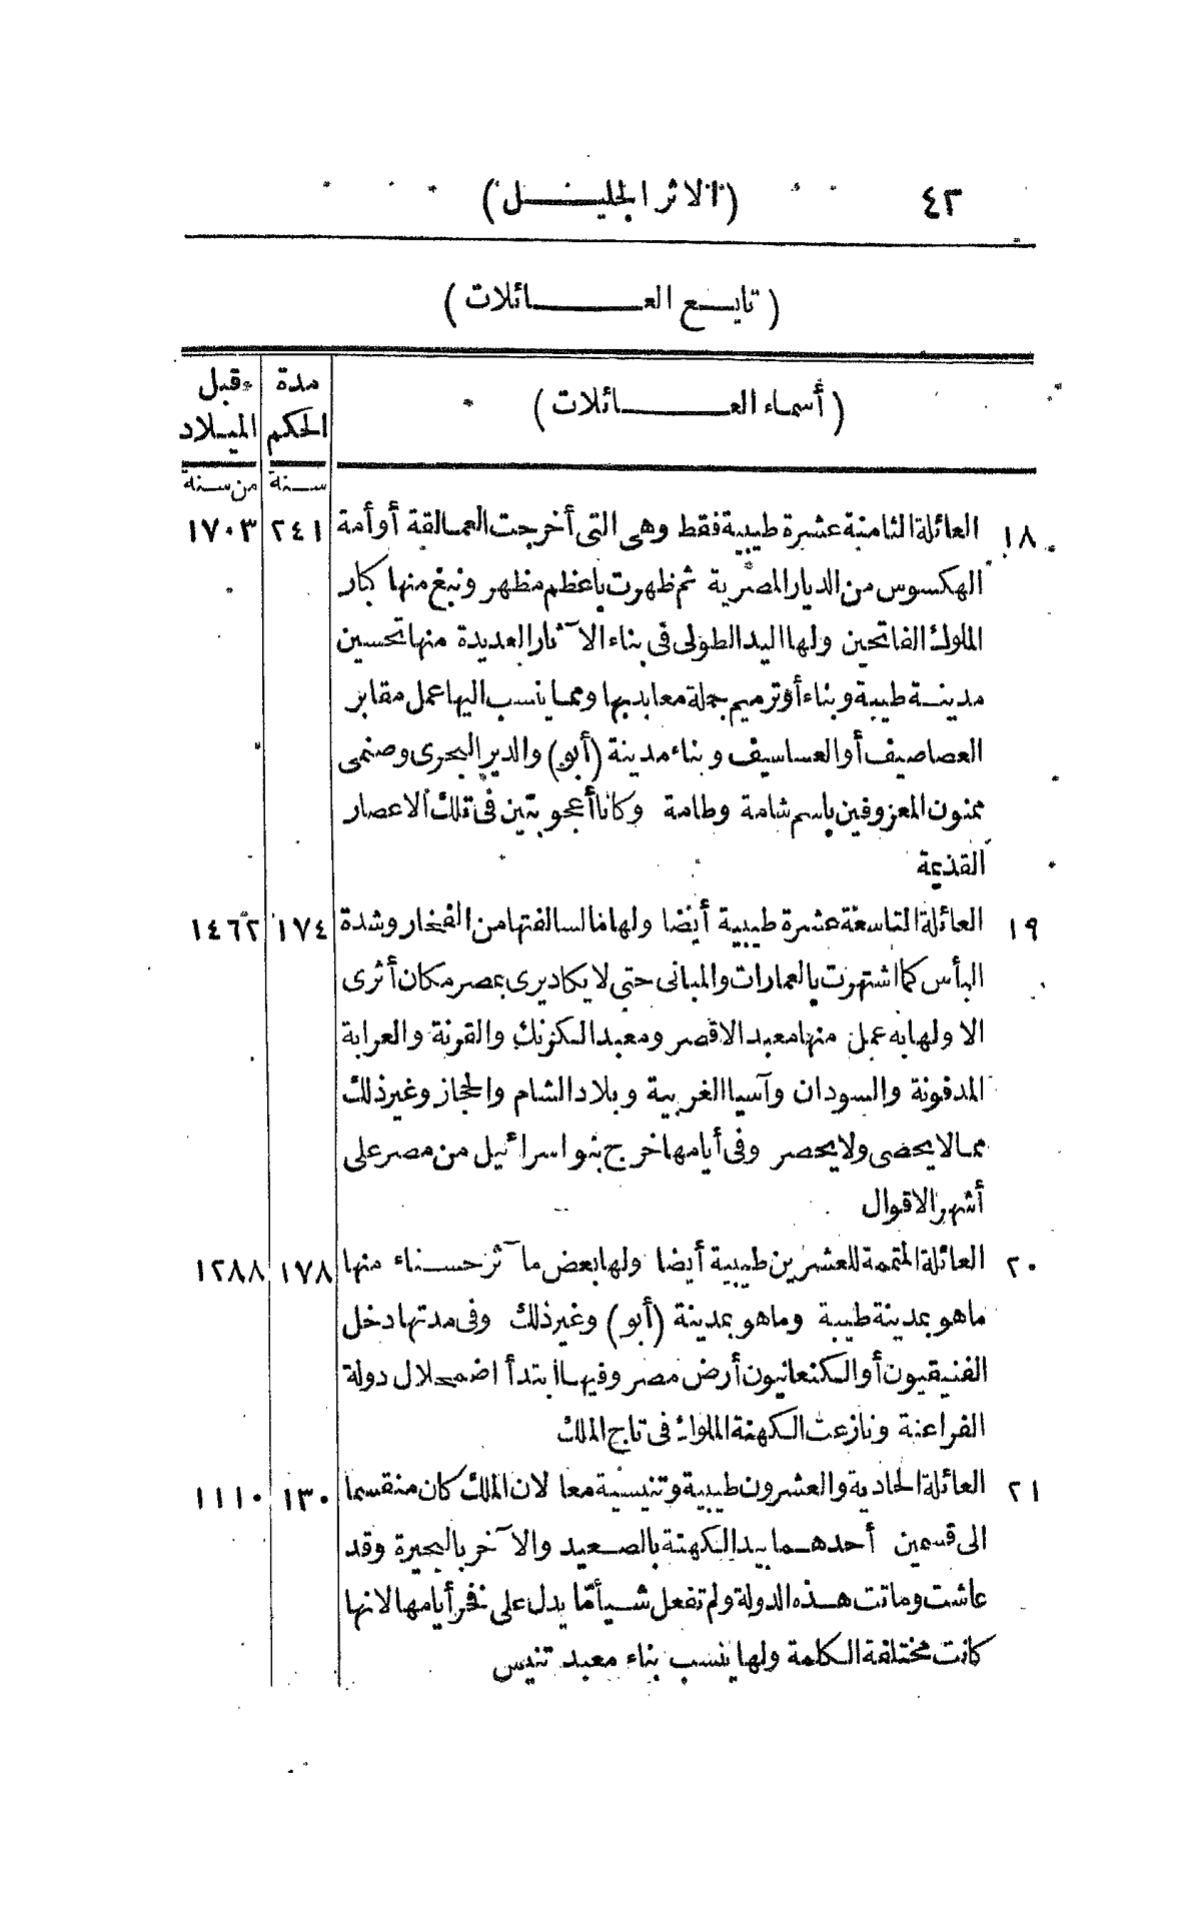 ٤٢ (الاثر الجليل)
(تابع العائلات)
(أسماء العائلات) مدة الحكم قبل الميلاد
سنة من سنة
١٨ العائلة الثامنة عشرة طيبية فقط وهى التى أخرجت العمالقة أو أمة ٢٤١ ١٧٠٣
الهكسوس من الديار المصرية ثم ظهرت بأعظم مظهر ونبغ منها كبار
الملوك الفاتحين ولها اليد الطولى فى بناء الآثار العديدة منها تحسين
مدينة طيبة وبناء أو ترميم جملة معابد بها ومما ينسب اليها عمل مقابر
العصاصيف أو العساسيف وبناء مدينة (أبو) والدير البحرى وصنمى
ممنون المعروفين باسم شامة وطامة وكانا أعجوبتين فى تلك الاعصار
القديمة
١٩ العائلة التاسعة عشرة طيبية أيضا ولها ما لسالفتها من الفخار وشدة ١٧٤ ١٤٦٢
البأس كما اشتهرت بالعمارات والمبانى حتى لا يكاد يرى بمصر مكان أثرى
الا ولها به عمل منها معبد الاقصر ومعبد الكرنك والقرنة والعرابة
المدفونة والسودان وآسيا الغربية وبلاد الشام والحجاز وغير ذلك
مما لا يحصى ولا يحصر وفى أيامها خرج بنو اسرائيل من مصر على
أشهر الاقوال
٢٠ العائلة المتممة للعشرين طيبية أيضا ولها بعض مآثر حسناء منها ١٧٨ ١٢٨٨
ما هو بمدينة طيبة وما هو بمدينة (أبو) وغير ذلك وفى مدتها دخل
الفنيقيون أو الكنعانيون أرض مصر وفيها ابتدأ اضمحلال دولة
الفراعنة ونازعت الكهنة الملوك فى تاج الملك
٢١ العائلة الحادية والعشرون طيبية وتنيسية معا لان الملك كان منقسما ١٣٠ ١١١٠
الى قسمين أحدهما بيد الكهنة بالصعيد والآخر بالبحيرة وقد
عاشت وماتت هذه الدولة ولم تفعل شيأ مّا يدل على نفر أيامها لانها
كانت مختلفة الكلمة ولها ينسب بناء معبد تنيس